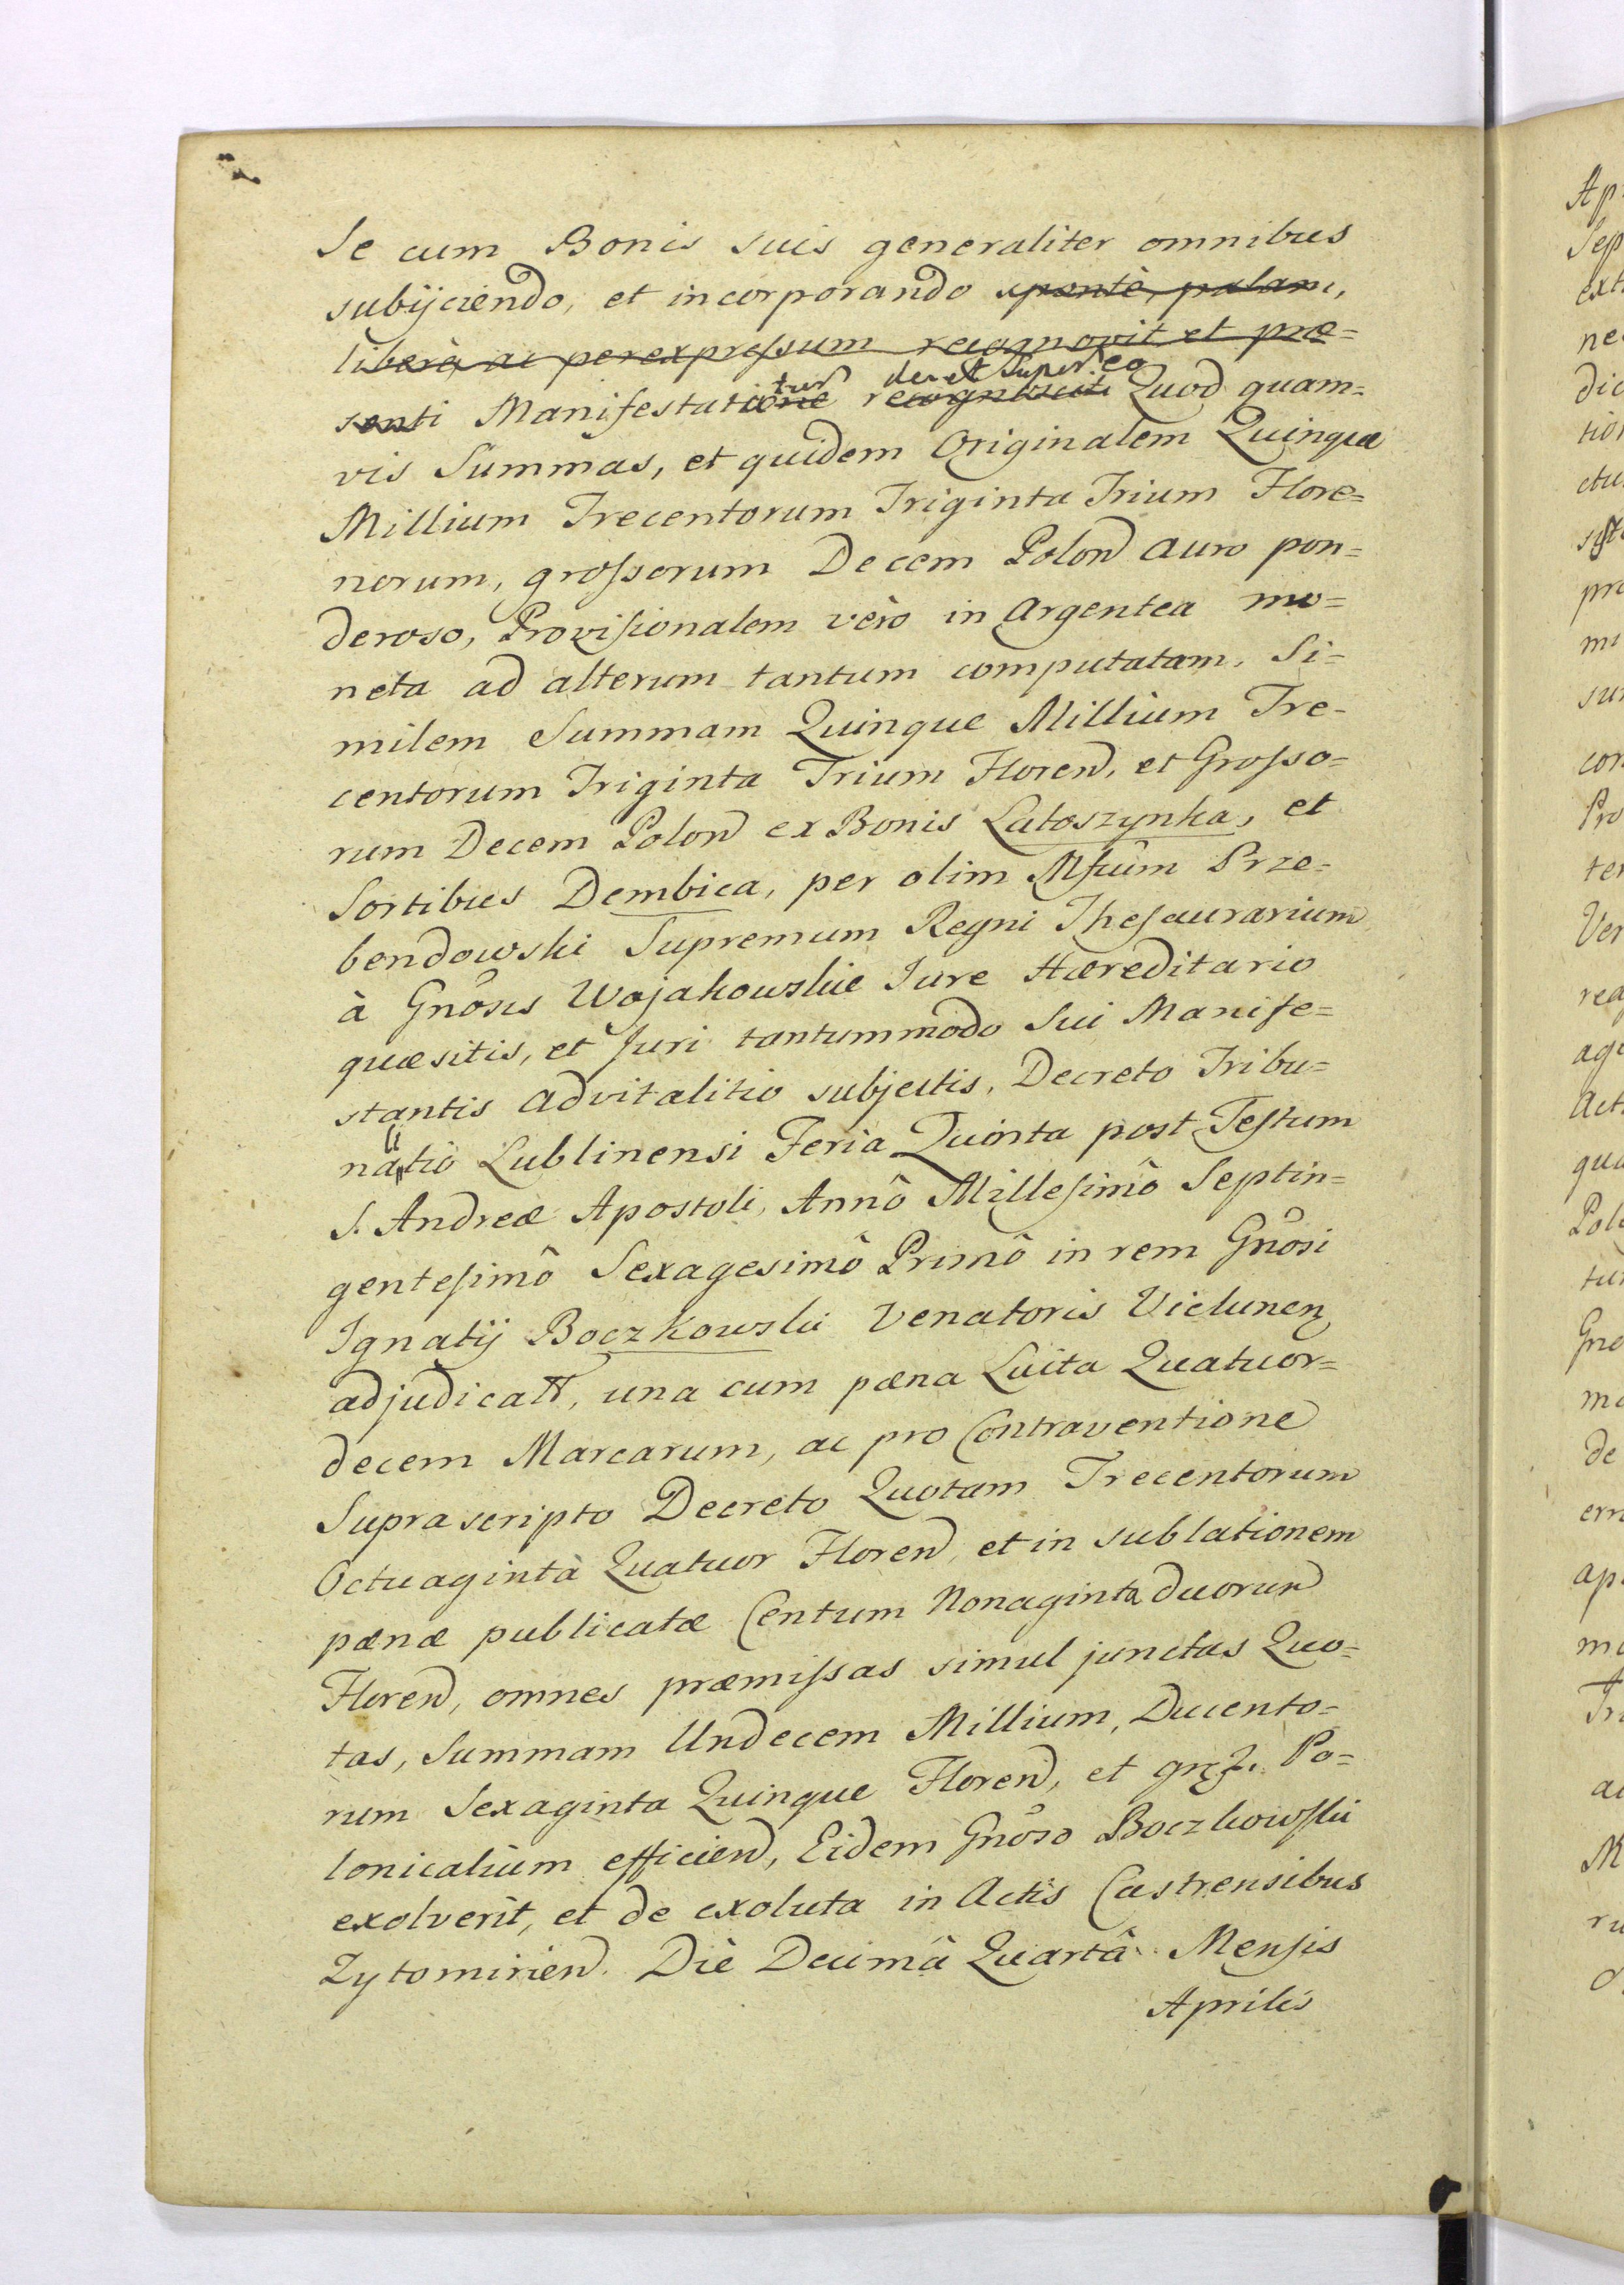 Se cum Bonis suis generaliter omnibus
subijciendo, et incorporando spontè, palam,
liberè, ac per expressum recognovit et præ=
senti Manifestatione recognoscit
tur
der et super eo Quod quam=
vis Summas, et quidem Originalem Quinque
Millium Trecentorum Triginta Trium Flore=
norum, grossorum Decem Polon auro pon=
deroso, Provisionalem vèro in Argentea mo=
neta ad alterum tantum computatam, Si=
milem Summam Quinque Millium Tre=
centorum Triginta Trium Floren, et Grosso=
rum Decem Polon ex Bonis Latoszynka, et
Sortibus Dembica, per olim Mfcum Prze=
bendowski Supremum Regni Thesaurarium
à Gnosis Wojakowskie Jure Hæreditario
quæsitis, et Juri tantummodo Sui Manife=
stantis advitalitio subjectis, Decreto Tribu=
nalitio Lublinensi Feria Quinta post Festum
S. Andreæ Apostoli, Annô Millesimô Septin=
gentesimô Sexagesimô Primô in rem Gnosi
Ignatij Boczkowski Venatoris Vielunen
adjudicatt, una cum pæna Luita Quatuor=
decem Marcarum, ac pro Contraventione
Suprascripto Decreto Quotam Trecentorum
Octuagintà Quatuor Floren, et in sublationem
pænæ publicatæ Centum Nonaginta duorum
Floren, omnes præmissas simul junctas Quo=
tas, Summam Undecem Millium, Ducento=
rum Sexaginta Quinque Floren, et Po=
lonicalium efficien, Eidem Gnoso Boczkowski
exolverit, et de exoluta in Actis Castrensibus
Zytomirien. Diè Decimâ Quartâ Mensis
Aprilis